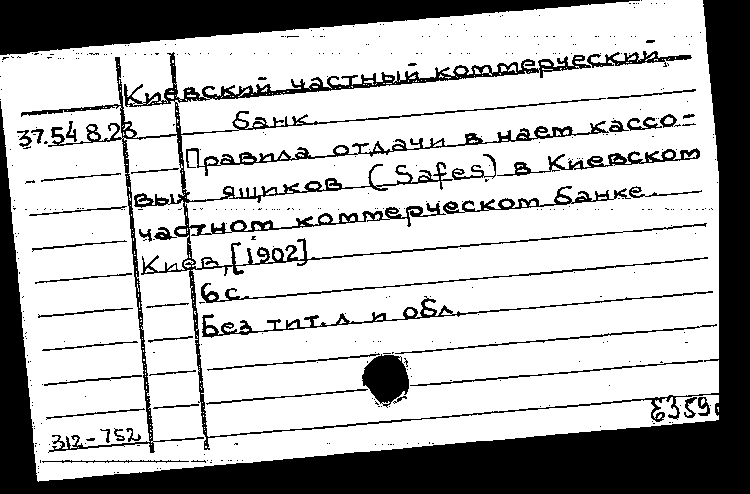 Киевский частный коммерческий
37.54.8.23 банк.
Правила отдачи в наем кассо-
вых ящиков (Safes) в Киевском
частном коммерческом банке.
Киев, [1902].
6 с.
Без тит. л. и обл.
312-752